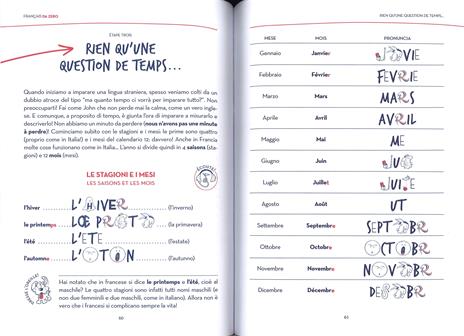 FRANÇAIS DA ZERO
ÉTAPE TROIS
RIEN QU'UNE
QUESTION DE TEMPS...
Quando iniziamo a imparare una lingua straniera, spesso veniamo colti da un
dubbio atroce del tipo "ma quanto tempo ci vorrà per imparare tutto?". Non
preoccuparti! Fai come John che non perde mai la calma, come un vero ingle-
se. E comunque, a proposito di tempo, è giunta l'ora di imparare a misurarlo e
descriverlo! Non abbiamo un minuto da perdere (nous n'avons pas une minute
à perdre)! Cominciamo subito con le stagioni e i mesi: le prime sono quattro
(proprio come in Italia!) e i mesi del calendario 12; davvero! Anche in Francia
molte cose funzionano come in Italia. L'anno si divide quindi in 4 saisons (sta-
gioni) e 12 mois (mesi).
LE STAGIONI E I MESI
LES SAISONS ET LES MOIS
ÉCOUTE!
l'hiver L'IVER (l'inverno)
le printemps LOE PRT (la primavera)
l'été L'ETE (l'estate)
l'automne L'OTON (l'autunno)
Hai notato che in francese si dice le printemps o l'été, cioè al
maschile? Le quattro stagioni sono infatti tutti nomi maschili (e
non due femminili e due maschili, come in italiano). Allora non è
vero che i francesi si complicano sempre la vita!
60
RIEN QU'UNE QUESTION DE TEMPS...
MESE MOIS PRONUNCIA
Gennaio Janvier VIE
Febbraio Février FEVRIE
Marzo Mars MARS
Aprile Avril AVRIL
Maggio Mai ME
Giugno Juin JU
Luglio Juillet JUIE
Agosto Août UT
Settembre Septembre SEPTBR
Ottobre Octobre OCTOBR
Novembre Novembre NOVBR
Dicembre Décembre DESBR
61